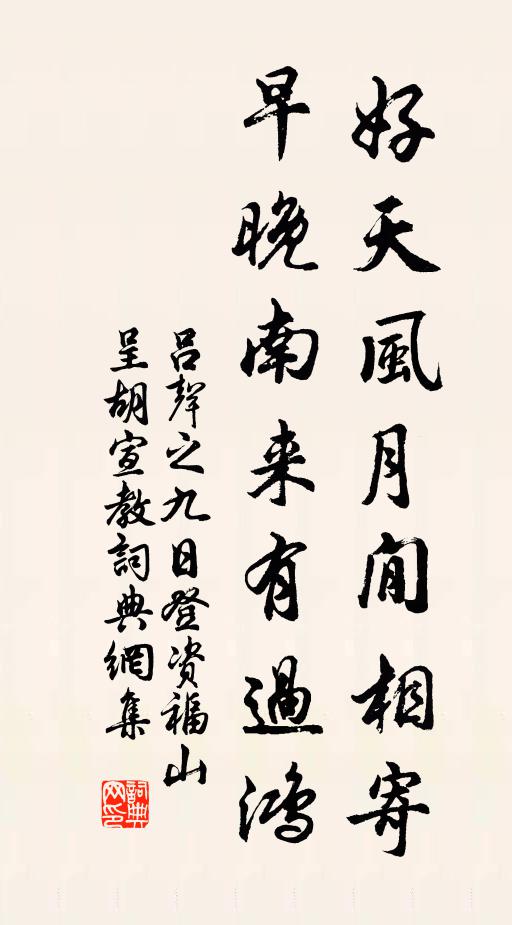 好天風月閒相寄
早晚南来有過鴻
呂聲之九日登资福山
呈胡宣教詞典網集
詞典
网印